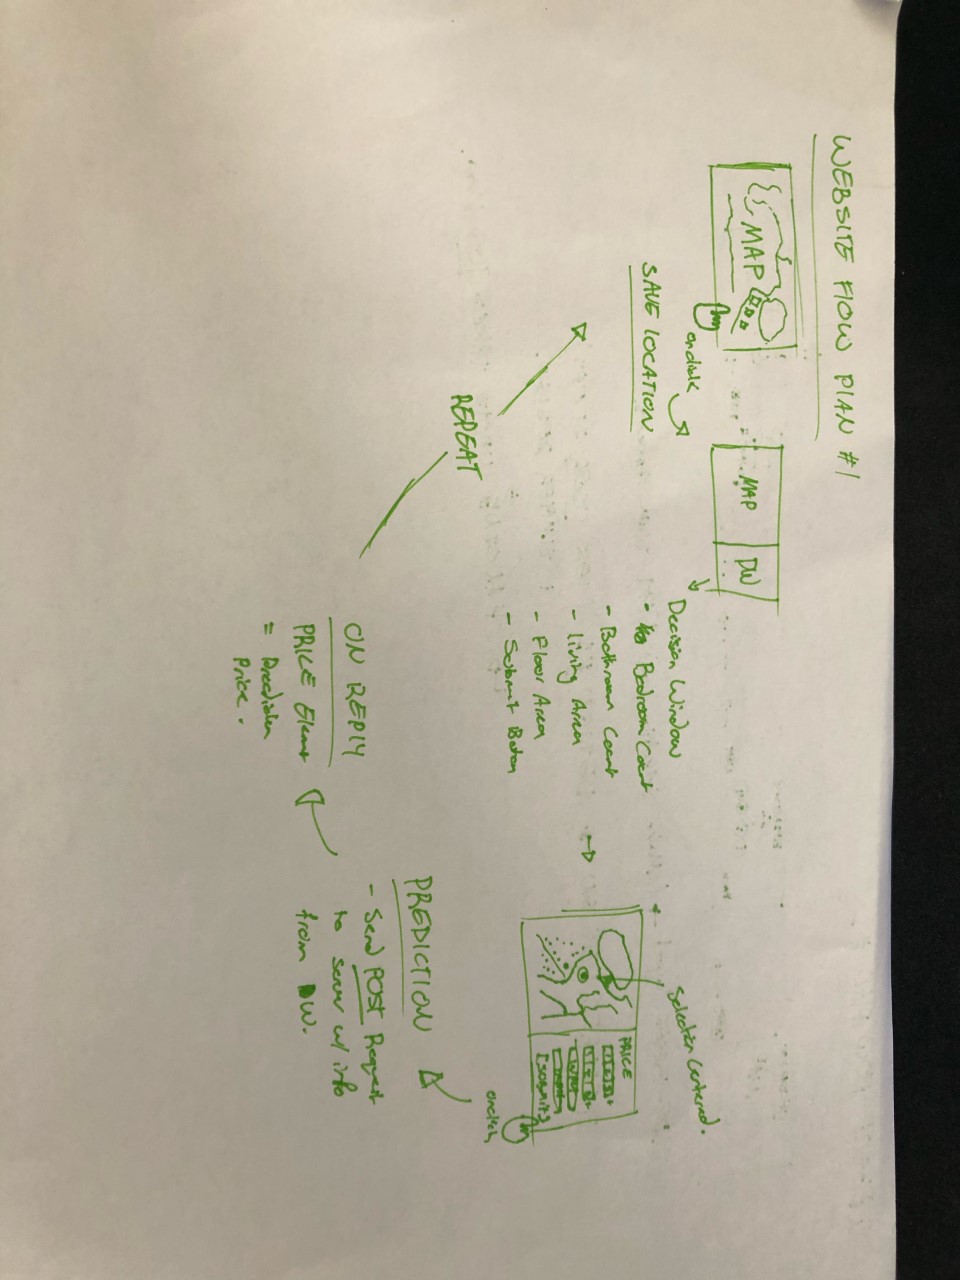 WEBSITE FLOW PLAN #1
MAP
onclick
SAVE LOCATION
MAP
DW
Decision Window
- Bedroom Count
- Bathroom Count
- living Area
- Floor Area
- Submit Button
selection centered.
PRICE
[SUBMIT]
onclick
PREDICTION
- Send POST Request
to server w/ info
from DW.
ON REPLY
PRICE Element
= Prediction
Price.
REPEAT